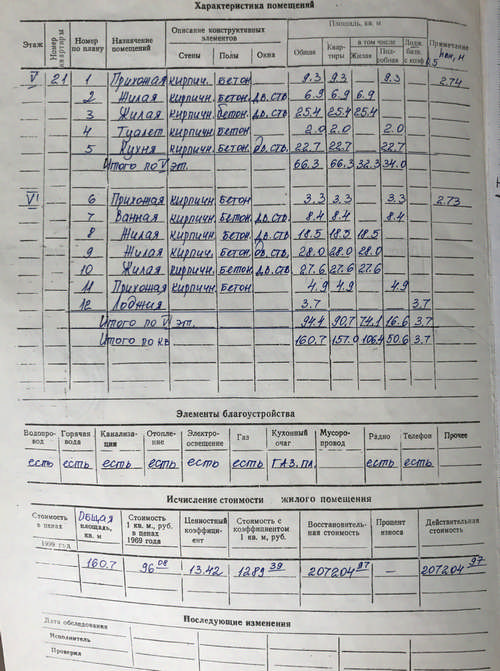 Характеристика помещений
Этаж Номер квартиры Номер по плану Назначение помещений Описание конструктивных элементов Площадь, кв. м Примечание
Стены Полы Окна Общая Квартиры в том числе Лодж. балк. с коэф 0.5 h вн, м
Жилая Подсобная
V 21 1 Прихожая кирпич. бетон 9.3 9.3 9.3 2.74
2 Жилая кирпичн бетон. дв.ств 6.9 6.9 6.9
3 Жилая кирпичн бетон. дв.ств. 25.4 25.4 25.4
4 Туалет кирпичн бетон 2.0 2.0 2.0
5 Кухня кирпичн. бетон дв.ств. 22.7 22.7 22.7
Итого по V эт. 66.3 66.3 32.3 34.0
VI 6 Прихожая кирпичн бетон 3.3 3.3 3.3 2.73
7 Ванная кирпичн бетон. дв.ств. 8.4 8.4 8.4
8 Жилая кирпичн бетон дв.ств. 18.5 18.5 18.5
9 Жилая кирпичн бетон дв.ств. 28.0 28.0 28.0
10 Жилая кирпичн бетон дв.ств. 27.6 27.6 27.6
11 Прихожая кирпичн бетон 4.9 4.9 4.9
12 Лоджия 3.7 3.7
Итого по VI эт. 94.4 90.7 74.1 16.6 3.7
Итого по кв 160.7 157.0 106.4 50.6 3.7
Элементы благоустройства
Водопровод Горячая вода Канализация Отопление Электроосвещение Газ Кухонный очаг Мусоропровод Радио Телефон Прочее
есть есть есть есть есть есть газ.пл. есть есть
Исчисление стоимости жилого помещения
Стоимость в ценах 1999 год Общая площадь, кв. м Стоимость 1 кв. м., руб. в ценах 1969 года Ценностный коэффициент Стоимость с коэффициентом 1 кв. м, руб. Восстановительная стоимость Процент износа Действительная стоимость
160.7 96 08 13.42 1289 39 207204 97 — 207204 97
Последующие изменения
Дата обследования
Исполнитель
Проверил